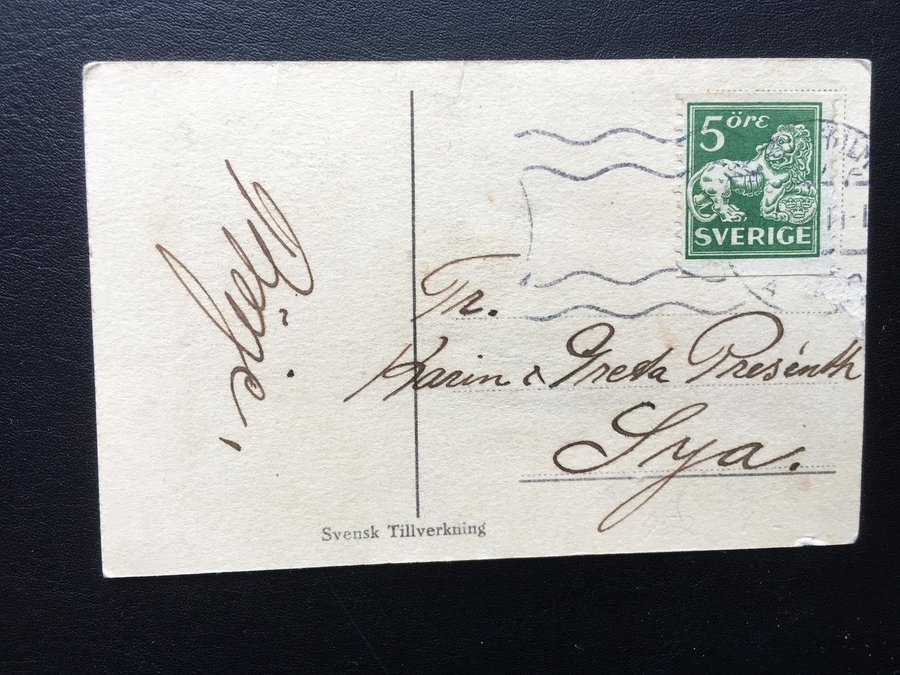 5 öre
SVERIGE
Fr.
Karin & Greta Presénth
Sya.
Svensk Tillverkning